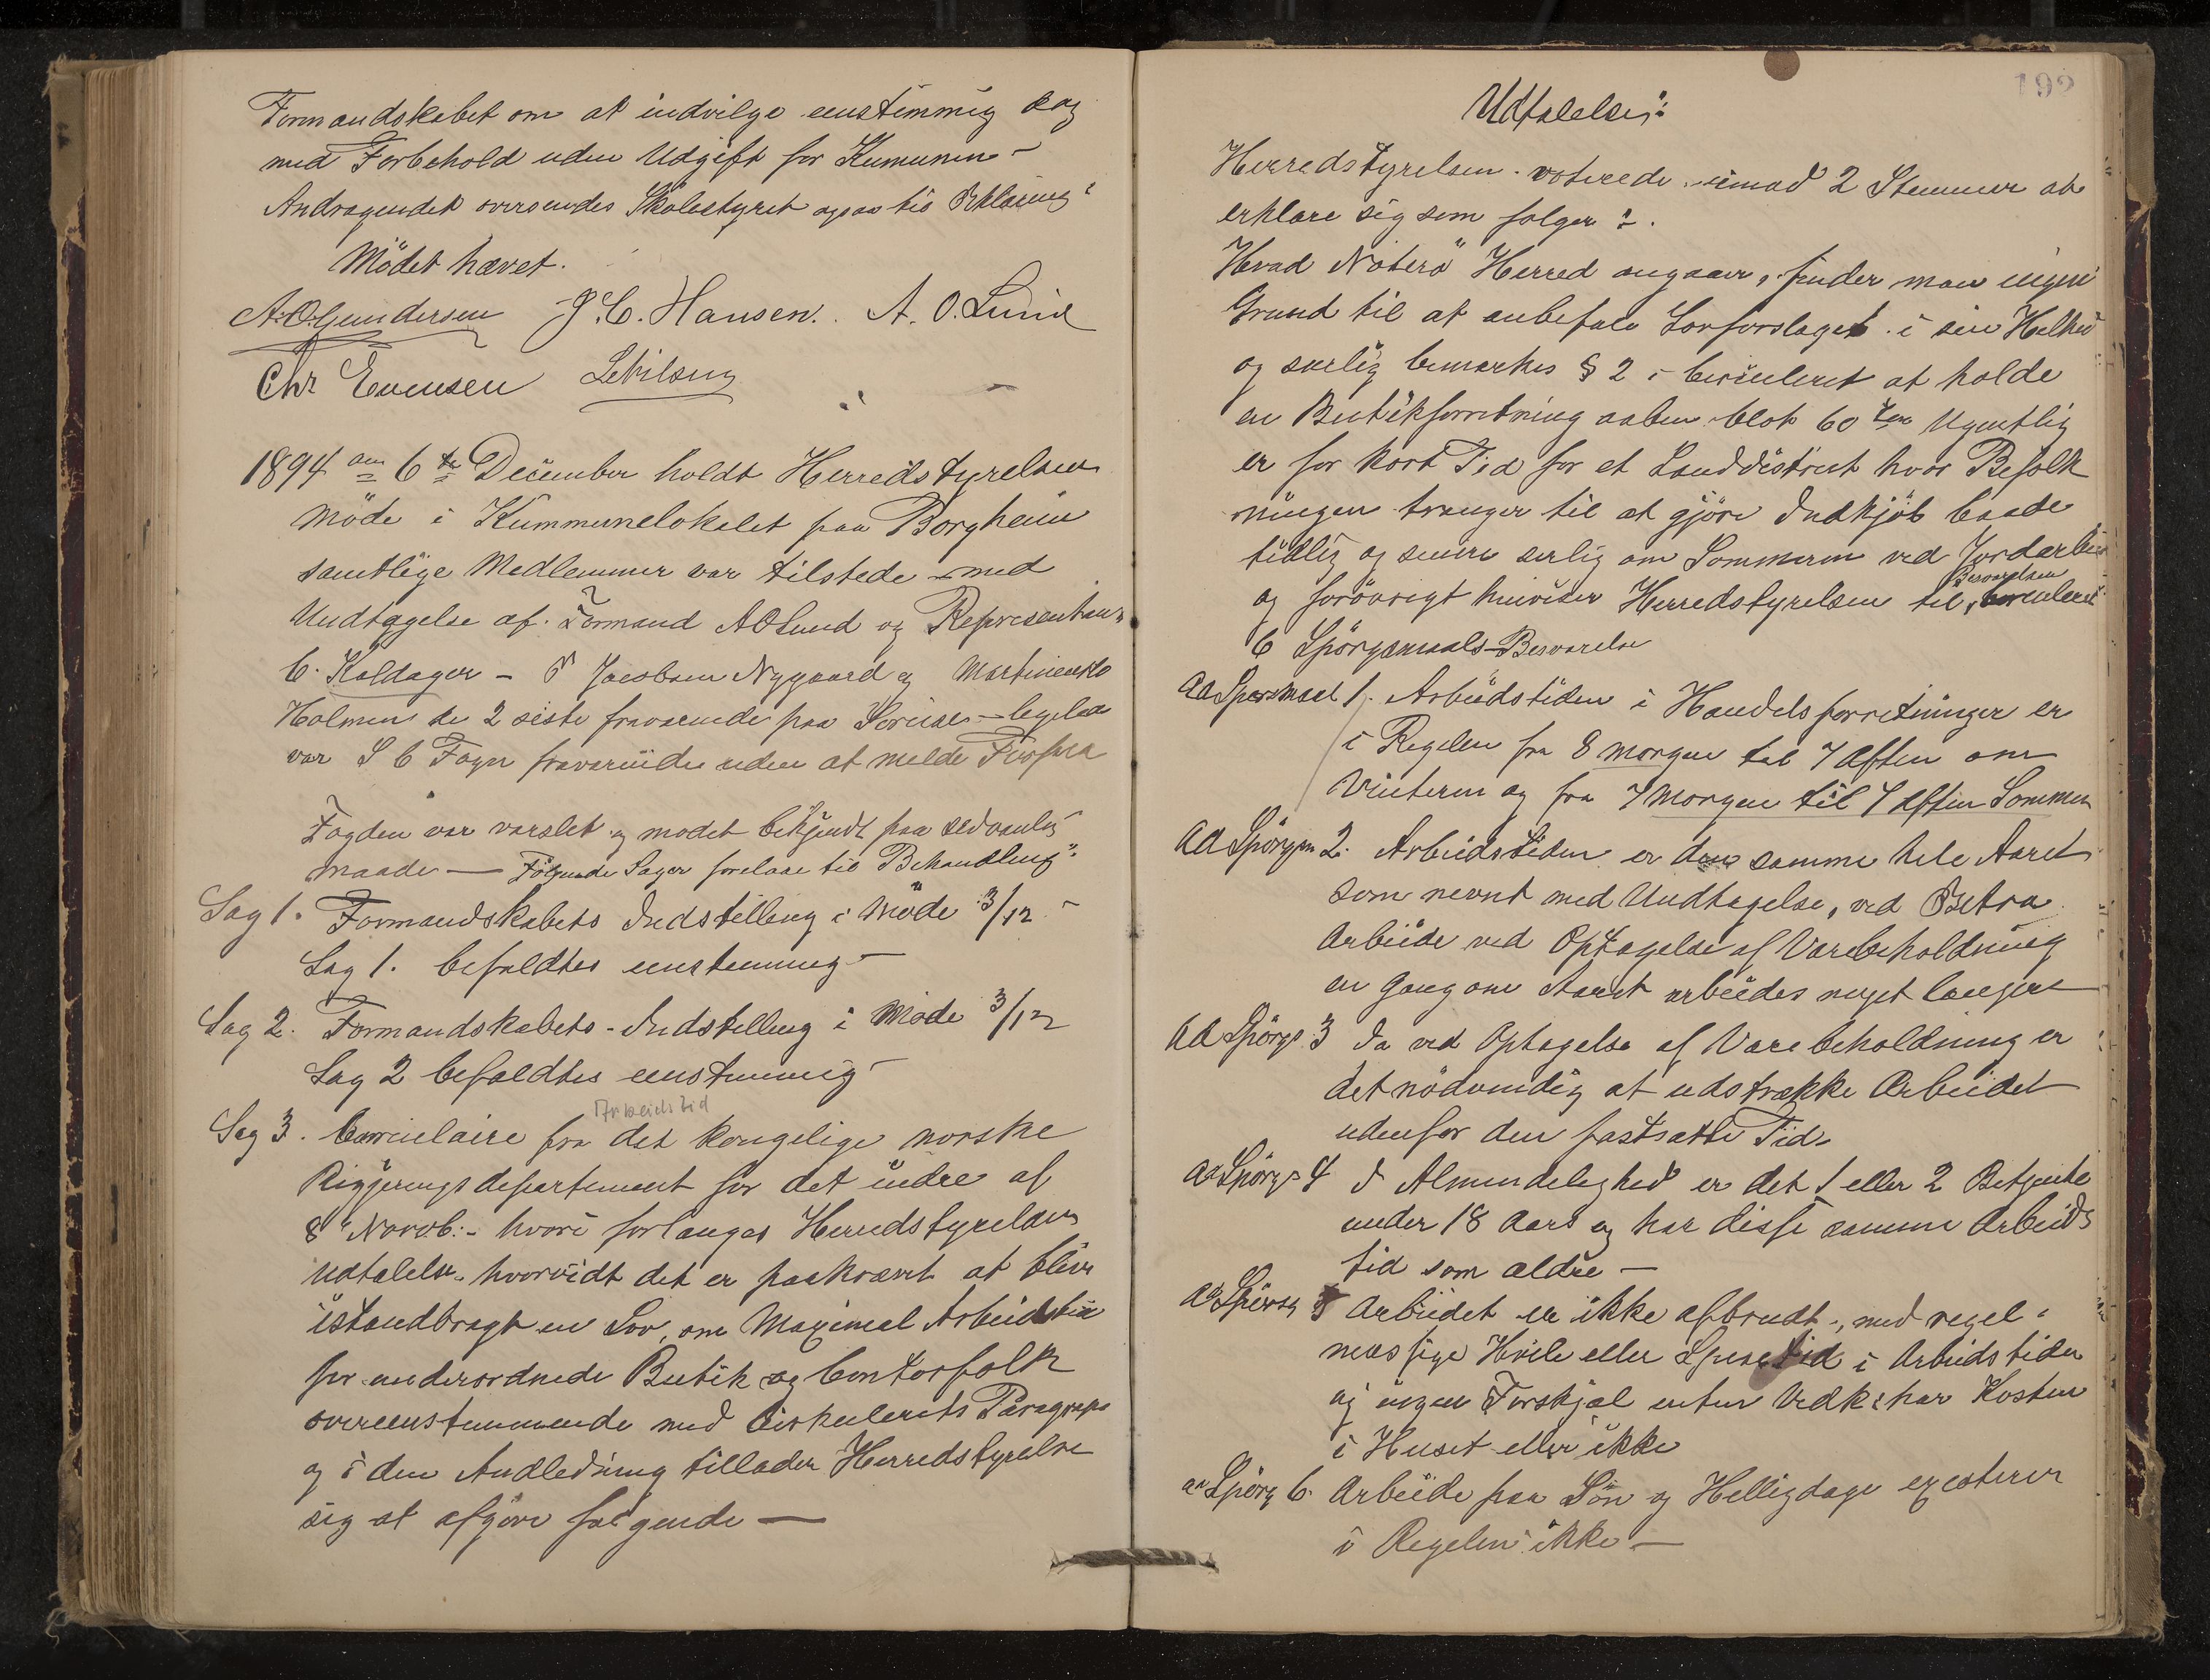 Formandskabet om at indvilge eenstimmig dog
med Forbehold uden Udgift for Kumunen -
Andragendet oversendes Skolestyret ogsaa til Erklæring
Mödet hævet.
A. O. Gundersen J. C. Hansen. A. O. Lund
Chr Evensen
1894 am 6te December holdt Herredstyrelsen
möde i Kummunelokalet paa Borgheim
samtlige Medlemmer var tilstede - med
Undtagelse af Formand AOLund og Representan
C. Kaldager - Jacobsen Nygaard og
Holmen de 2 siste fraværende paa Soreise - legeled
var S C Fogn fraværinde uden at melde Forfald
Fogden var varslet og mödet bekjendt paa sedvanlig
maade — Fölgende Sager forelaae til Behandling:
Sag 1. Formandskabets Indstilling i Möde 3/12 -
Sag 1. befaldtes eenstemmig -
Sag 2. Formandskabets - Indstilling i Möde 3/12
Sag 2 befaldtes eenstemmig
Arbeidstid
Sag 3. Circulaire fra det kongelige norske
Regjeringsdepartement for det indre af
8 Novb. - hvori forlanges Herredstyrelsens
Udtalelse. hvorvidt det er paakrævet at blive
istandbragt en Lov, om Maximal Arbeidstid
for underordnede Butik og Contorfolk
overeenstemmende med Cirkulerets Paragraper
og i den Andledning tillader Herredstyrelsen
sig at afgöre fölgende —
192
Udtalelse:
Herredstyrelsen voterede imod 2 Stemmer at
erklare sig som folger :-
Hvad Nöterö Herred angaaer, finder man ingen
Grund til at anbefale Lovforslaget i sin Helhed
og særlig bemærkes § 2 i Circuleret at holde
en Butikforretning aaben blot 60 Ugentlig
er for kort Tid for et Landdistrict hvor Befolk
ningen trænger til at gjöre Indkjöb baade
tidlig og senere serlig om Sommeren ved Jordarbeid
og forövrigt henviser Herredstyrelsen til Besvarelsen circuleret
6 Spörgsmaals-Besvarelse
Ad Spørsmaal 1. Arbeidstiden i Handelsforretninger er
i Regelen fra 8 morgen til 7 Aften om
Vinteren og fra 7 morgen til 7 Aften Sommer
Ad Spörgsm 2. Arbeidstiden er den samme hele Aaret
som nevnt med Undtagelse, ved Extra
Arbeide ved Optagelse af Varebeholdning
en Gang om Aaret arbeides noget længere
Ad Spörgs 3 Ja ved Optagelse af Varebeholdning er
det nödvendig at udstrække Arbeidet
udenfor den fastsatte Tid.
Ad Spörgs 4 I Almindelighed er det 1 eller 2 Betjente
under 18 Aars og har disse samme Arbeids
tid som ældre -
Ad Spörsg 5 Arbeidet er ikke afbrudt, med regel-
mæssige Hvile eller Spisetid i Arbeidstiden
og ingen Forskjæl enten Vedk: har Kosten
i Huset eller ikke
ad Spörg 6. Arbeide paa Sön og Helligdage existerer
i Regelen ikke -